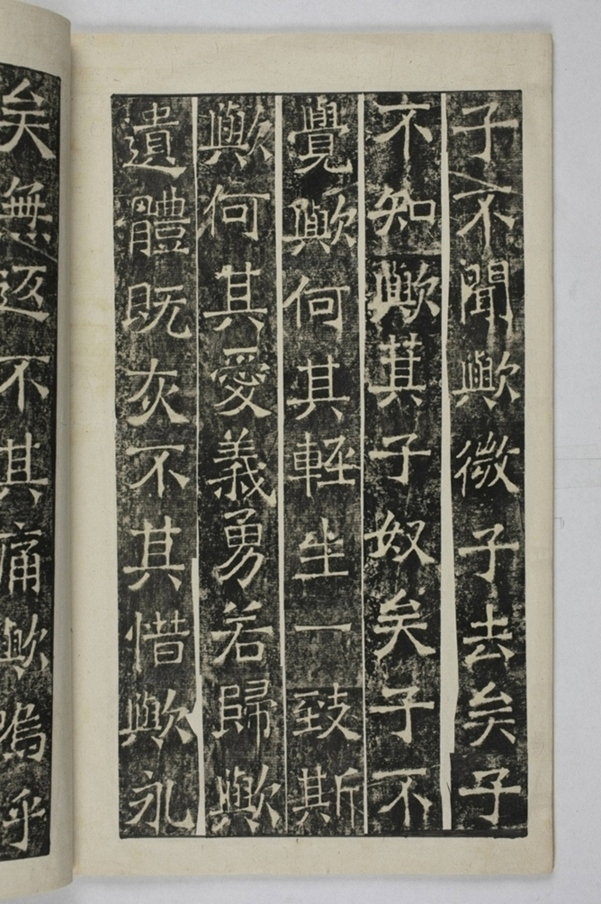 子不聞歟微子去矣子
不知歟萁子奴矣子不
覺歟何其輕生一致斯
歟何其愛義勇若歸歟
遺體既灰不其惜歟永
矣無返不其痛歟嗚乎